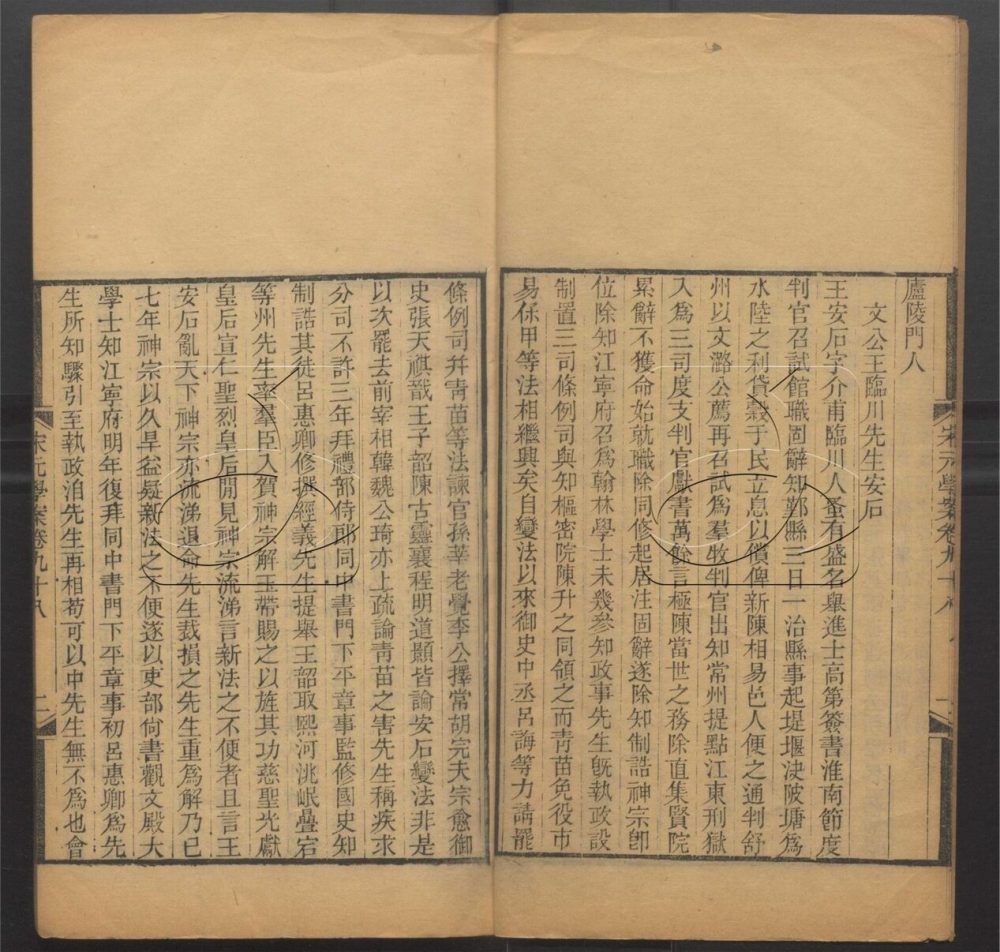 廬陵門人
文公王臨川先生安石
王安石字介甫臨川人蚤有盛名舉進士高第簽書淮南節度
判官召試館職固辭知鄞縣三日一治縣事起堤堰決陂塘爲
水陸之利貸穀于民立息以償俾新陳相易邑人便之通判舒
州以文潞公薦再召試爲羣牧判官出知常州提點江東刑獄
入爲三司度支判官獻書萬餘言極陳當世之務除直集賢院
累辭不獲命始就職除同修起居注固辭遂除知制誥神宗卽
位除知江寧府召爲翰林學士未幾參知政事先生旣執政設
制置三司條例司與知樞密院陳升之同領之而靑苗免役市
易保甲等法相繼興矣自變法以來御史中丞呂誨等力請罷
條例司幷靑苗等法諫官孫莘老覺李公擇常胡完夫宗愈御
史張天祺戩王子韶陳古靈襄程明道顥皆論安石變法非是
以次罷去前宰相韓魏公琦亦上疏論靑苗之害先生稱疾求
分司不許三年拜禮部侍郎同中書門下平章事監修國史知
制誥其徒呂惠卿修撰經義先生提舉王韶取熙河洮岷疊宕
等州先生率羣臣入賀神宗解玉帶賜之以旌其功慈聖光獻
皇后宣仁聖烈皇后閒見神宗流涕言新法之不便者且言王
安石亂天下神宗亦流涕退命先生裁損之先生重爲解乃已
七年神宗以久旱益疑新法之不便遂以吏部尙書觀文殿大
學士知江寧府明年復拜同中書門下平章事初呂惠卿爲先
生所知驟引至執政洎先生再相苟可以中先生無不爲也會
宋元學案卷九十八 二